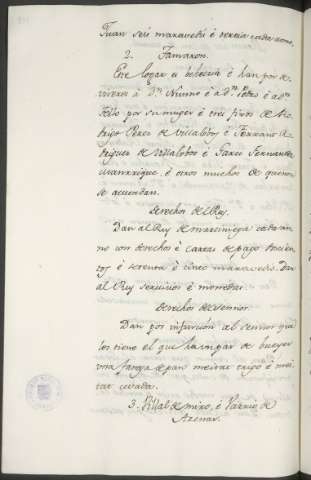 Juan seis maravedis é tercia cada uno.
2. Tamaron.
Este logar es behetria é han por de-
viseros á Dⁿ. Nunno é a Dⁿ. Pedro é a Dⁿ.
Tello por su muger é tres fijos de Ro-
drigo Perez de Villalobos é Ferrand Ro-
driguez de Villalobos é Garci Fernandez
Manrrique, é otros muchos de que non
se acuerdan.
Derechos del Rey.
Dan al Rey de martiniega cada an-
no con derechos é cartas de pago trecien-
tos é setenta é cinco maravedis. Dan
al Rey servicios é monedas.
Derechos del sennor.
Dan por infurcion al sennor que
los tiene el que ha un par de bueyes
una fanega de pan meitat trigo é mei-
tat cevada.
3. Villal de miro, é Varrio de
Aznar.